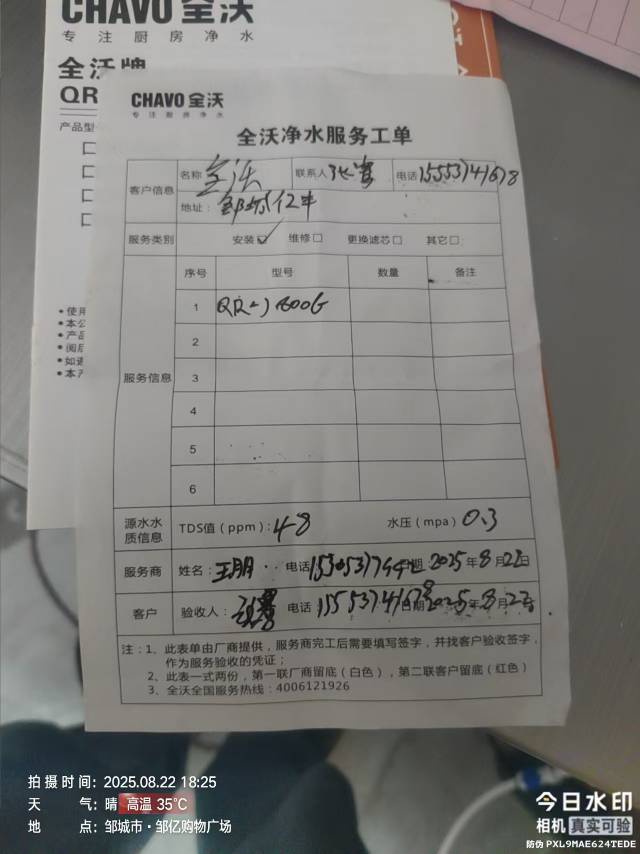 CHAVO 全沃
专注厨房净水
全沃牌
QR
产品型
• 使用
• 本公
• 产品
• 阅后
• 如遇
• 本产
CHAVO 全沃
专注厨房净水
全沃净水服务工单
客户信息 名称 全沃 联系人 电话 15553741678
地址： 邹城亿丰
服务类别 安装☑ 维修□ 更换滤芯□ 其它□
服务信息 序号 型号 数量 备注
1
2
3
4
5
6
源水水质信息 TDS值（ppm）：48 水压（mpa）0.3
服务商 姓名：王朋 电话 日期 2025年8月22日
客户 验收人： 电话 15553741678 日期 2025年8月22日
注：1、此表单由厂商提供，服务商完工后需要填写签字，并找客户验收签字，
作为服务验收的凭证；
2、此表一式两份，第一联厂商留底（白色），第二联客户留底（红色）
3、全沃全国服务热线：4006121926
拍摄时间：2025.08.22 18:25
天 气：晴 高温 35℃
地 点：邹城市·邹亿购物广场
今日水印
相机 真实可验
防伪 PXL9MAE624TEDE